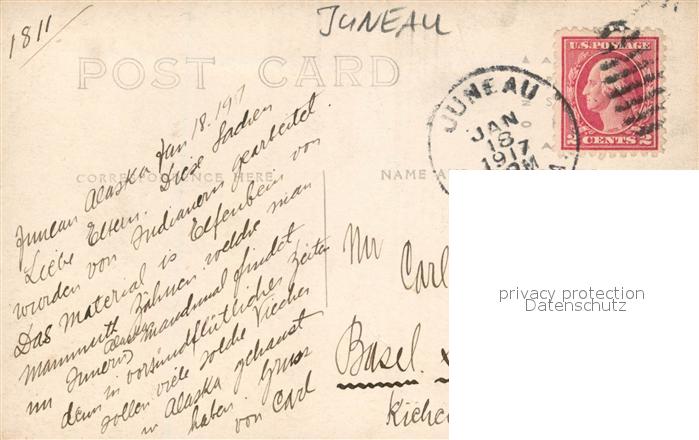 1811
JUNEAU
POST CARD
U.S. POSTAGE
2 CENTS 2
JUNEAU
JAN
18
1917
CORRESPONDENCE HERE
NAME A
Juneau Alaska Jan 18. 197
Liebe Eltern. Diese Sachen
wurden von Indianern gearbeitet.
Das Material is Elfenbein von
Mammuth Zähnen welche man
im Innern Alaska Manchmal findet
denn in vorsündflutlichen Zeiten
sollen viele solche Viecher
in Alaska gehaust
haben. Gruss
von Carl
Mr Carl
Basel.
privacy protection
Datenschutz